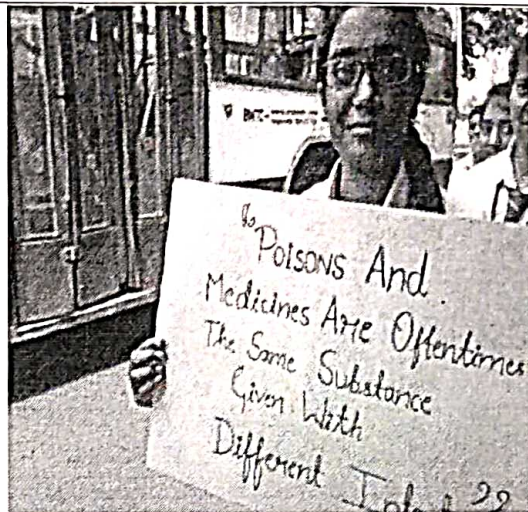 “Poisons And
Medicines Are Oftentimes
The Same Substance
Given With
Different